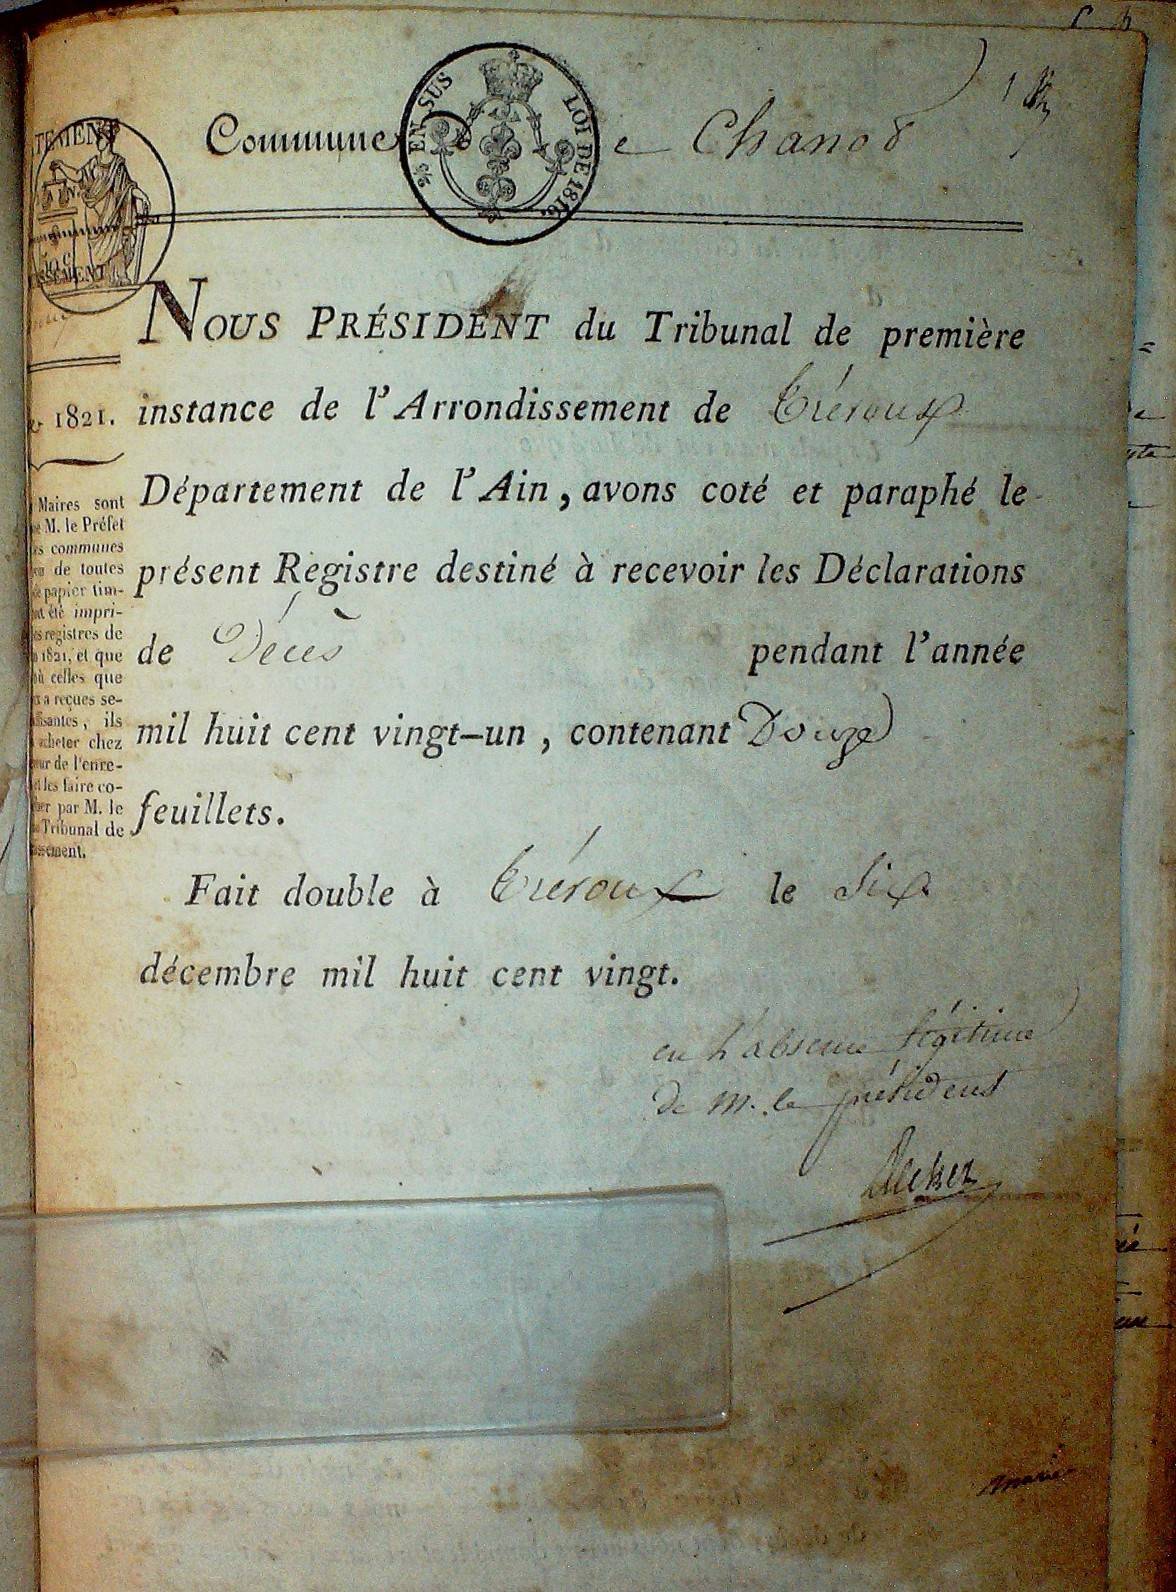 Commune de Chanoz
EN SUS
LOI DE 1816.
TEMEN
NOUS PRÉSIDENT du Tribunal de première
instance de l'Arrondissement de Trévoux
Département de l'Ain, avons coté et paraphé le
présent Registre destiné à recevoir les Déclarations
de Décès pendant l'année
mil huit cent vingt-un, contenant Douze
feuillets.
Fait double à Trévoux le Six
décembre mil huit cent vingt.
en l'absence légitime
de M. le président
1821.
Maires sont
M. le Préfet
communes
de toutes
papier tim-
été impri-
registres de
1821, et que
celles que
a reçues se-
, ils
acheter chez
de l'enre-
les faire co-
par M. le
Tribunal de